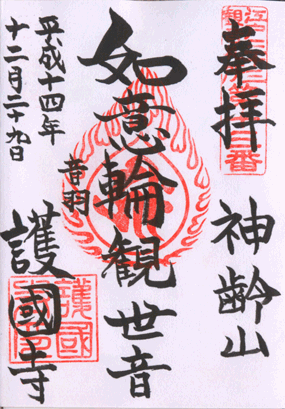 奉拝
神齢山
如意輪観世音
音羽
護國寺
平成十四年
十二月二十九日